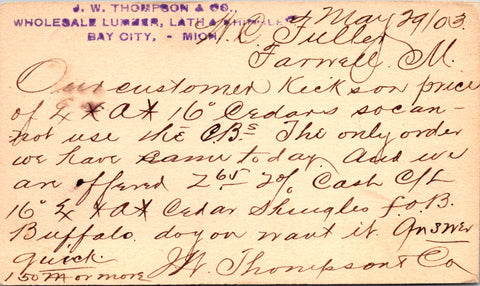 J. W. THOMPSON & CO.,
WHOLESALE LUMBER, LATH & SHINGLES
BAY CITY, - MICH.
May 29/03
A. C. Fuller
Farwell M.
Our customer Kicks on price
of Ex *A* 16" Cedars so can-
not use the C/Bs The only order
we have same today. And we
are offered 2 65 2% Cash C/L
16" Ex *A* Cedar Shingles f.o.B.
Buffalo. do you want it. Answer
quick. J W. Thompson & Co
150 M or more